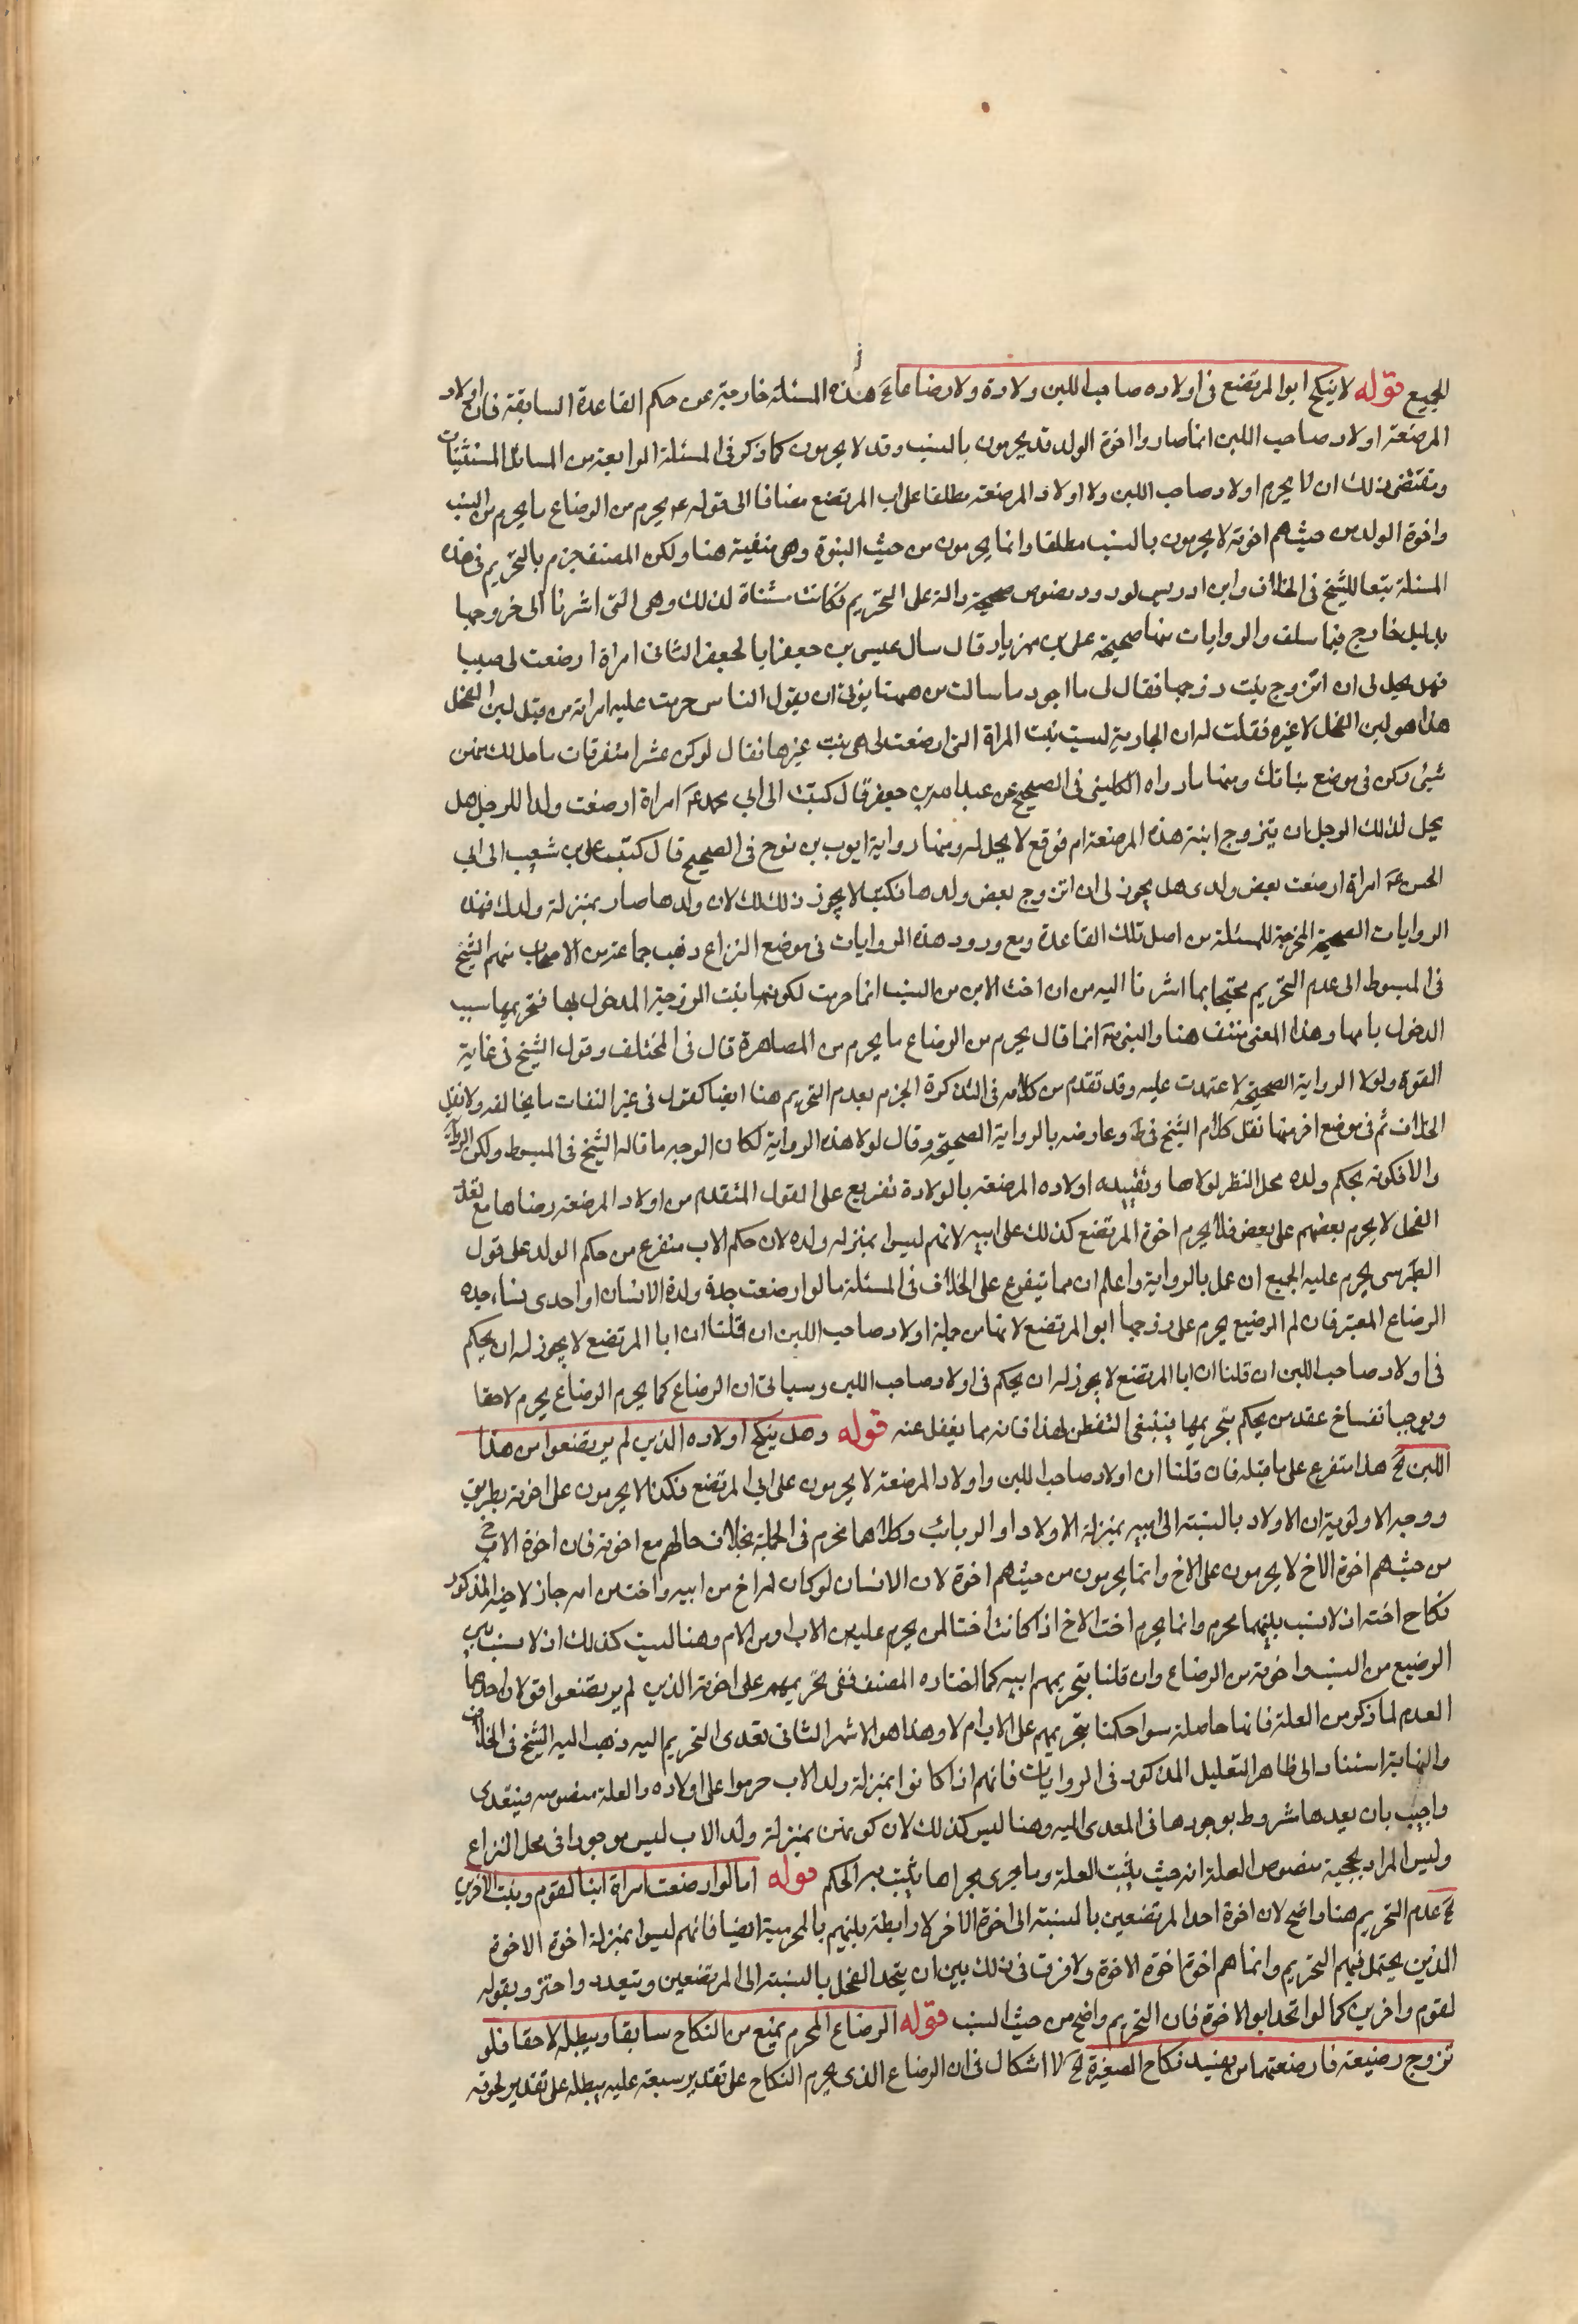 للجميع قوله لا ينكح ابو المرتضع فى اولاده صاحب اللبن ولادة ولا رضاعا الخ هذه المسئلة خارجة عن حكم القاعدة السابقة فان اولاد
المرضعة اولاد صاحب اللبن انما صاروا اخوة الولد قد يحرمون بالنسب وقد لا يحرمون كما ذكر فى المسئلة الرابعة من المسائل المستثنيات
ومقتضى ذلك ان لا يحرم اولاد صاحب اللبن ولا اولاد المرضعة مطلقا على اب المرتضع مضافا الى قوله ع يحرم من الرضاع ما يحرم من النسب
واخوة الولد من حيث هم اخوته لا يحرمون بالنسب مطلقا وانما يحرمون من حيث البنوة وهى منفية هنا ولكن المصنف جزم بالتحريم فى هذه
المسئلة تبعا للشيخ فى الخلاف وابن ادريس لورود نصوص صحيحة دالة على التحريم فكانت مستثناة لذلك وهى التى اشرنا الى خروجها
بدليل خارج فيما سلف والروايات منها صحيحة على بن مهزيار قال سال عيسى بن جعفر ابا جعفر الثانى امراة ارضعت لى صبيا
فهل يحل لى ان اتزوج بنت زوجها فقال لى ما اجود ما سالت من ههنا يؤتى ان يقول الناس حرمت عليه امراته من قبل لبن الفحل
هذا هو لبن الفحل لا غيره فقلت له ان الجارية ليست بنت المراة التى ارضعت لى هى بنت غيرها فقال لو كن عشرا متفرقات ما حل لك منهن
شئ وكن فى موضع بناتك ومنها ما رواه الكلينى فى الصحيح عن عبد الله بن جعفر قال كتبت الى ابى محمد ع امراة ارضعت ولدا للرجل هل
يحل لذلك الرجل ان يتزوج ابنة هذه المرضعة ام فوقع لا يحل له ومنها رواية ايوب بن نوح فى الصحيح قال كتب على بن شعيب الى ابى
الحسن ع امراة ارضعت بعض ولدى هل يجوز لى ان اتزوج بعض ولدها فكتب لا يجوز ذلك لك لان ولدها صار بمنزلة ولدك فهذه
الروايات الصحيحة المخرجة للمسئلة من اصل تلك القاعدة ومع ورود هذه الروايات فى موضع النزاع ذهب جماعة من الاصحاب منهم الشيخ
فى المبسوط الى عدم التحريم محتجا بما اشرنا اليه من ان اخت الابن من النسب انما حرمت لكونها بنت الزوجة المدخول بها فتحريمها بسبب
الدخول بامها وهذا المعنى منتف هنا والنبى ص انما قال يحرم من الرضاع ما يحرم من المصاهرة قال فى المختلف وقول الشيخ فى غاية
القوة ولولا الرواية الصحيحة لاعتمدت عليه وقد تقدم من كلامه فى التذكرة الجزم بعدم التحريم هنا ايضا كقوله فى غير التفات ما يخالفه ولا نقل
الخلاف ثم فى موضع اخر منها نقل كلام الشيخ فى ط وعارضه بالرواية الصحيحة وقال لولا هذه الرواية لكان الوجه ما قاله الشيخ فى المبسوط ولكن الرواية
والا فكونه بحكم ولده محل النظر لولاها وتقييده اولاده المرضعة بالولادة تفريع على القول المتقدم من اولاد المرضعة رضاعا مع تعدد
الفحل لا يحرم بعضهم على بعض فلا يحرم اخوة المرتضع كذلك على ابيه لانهم ليسوا بمنزلة ولده لان حكم الاب متفرع من حكم الولد على قول
الطبرسى يحرم عليه الجميع ان عمل بالرواية واعلم ان مما يتفرع على الخلاف فى المسئلة ما لو ارضعت جدة ولدة الانسان او احدى نساء جده
الرضاع المعتبر فان ام الرضيع يحرم على زوجها ابو المرتضع لانها من جملة اولاد صاحب اللبن ان قلنا ان ابا المرتضع لا يجوز له ان يحكم
فى اولاد صاحب اللبن ان قلنا ان ابا المرتضع لا يجوز له ان يحكم فى اولاد صاحب اللبن وسياتى ان الرضاع كما يحرم الرضاع يحرم لاحقا
ويوجب انفساخ عقد من يحكم بتحريمها فينبغى التفطن لهذا فانه مما يغفل عنه قوله وهل ينكح اولاده الذين لم يرتضعوا من هذا
اللبن الخ هذا متفرع على ما قبله فان قلنا ان اولاد صاحب اللبن واولاد المرضعة لا يحرمون على ابى المرتضع فكذا لا يحرمون على اخوته بطريق
ووجه الاولوية ان الاولاد بالنسبة الى ابيه بمنزلة الاولاد او الربائب وكلاهما محرم فى الجملة بخلاف حالهم مع اخوته فان اخوة الاخ
من حيث هم اخوة الاخ لا يحرمون على الاخ وانما يحرمون من حيث هم اخوة لان الانسان لو كان له اخ من ابيه واخت من امه جاز لاخيه المذكور
نكاح اخته اذ لا نسب بينهما محرم وانما يحرم اخت الاخ اذا كانت اختا لمن يحرم عليه من الاب او من الام وهنا ليست كذلك اذ لا نسب بين
الرضيع من النسب واخوته من الرضاع وان قلنا بتحريمهم ابيه كما اختاره المصنف ففى تحريمهم على اخوته الذين لم يرتضعوا قولان احدهما
العدم لما ذكر من العلة فانها حاصلة سوا حكمنا بتحريمهم على الاب ام لا وهذا هو الاشهر الثانى تعدى التحريم اليه ذهب اليه الشيخ فى الخلاف
والنهاية استنادا الى ظاهر التعليل المذكور فى الروايات فانهم اذا كانوا بمنزلة ولد الاب حرموا على اولاده والعلة منصوصه فيتعدى
واجيب بان تعديها مشروط بوجودها فى المعدى اليه وهنا ليس كذلك لان كونهن بمنزلة ولد الاب ليس موجودا فى محل النزاع
وليس المراد بحجية منصوص العلة انه حيث يثبت العلة وما جرى مجراها يثبت به الحكم قوله اما لو ارضعت امراة ابنا لقوم وبنت الاخرين
الخ عدم التحريم هنا واضح لان اخوة احد المرتضعين بالنسبة الى اخوة الاخر لا رابطة بينهم بالمحرمية ايضا فانهم ليسوا بمنزلة اخوة الاخوة
الذين يحتمل فيهم التحريم وانما هم اخوة اخوة الاخوة ولا فرق فى ذلك بين ان يتحد الفحل بالنسبة الى المرتضعين ويتعدد واحترز بقوله
لقوم واخرين كما لو اتحد ابو الاخوة فان التحريم واضح من حيث النسب قوله الرضاع المحرم يمنع من النكاح سابقا ويبطله لاحقا فلو
تزوج رضيعة فارضعتها من يفسد نكاح الصغيرة الخ لا اشكال فى ان الرضاع الذى يحرم النكاح على تقدير سبقه عليه يبطله على تقدير لحوقه